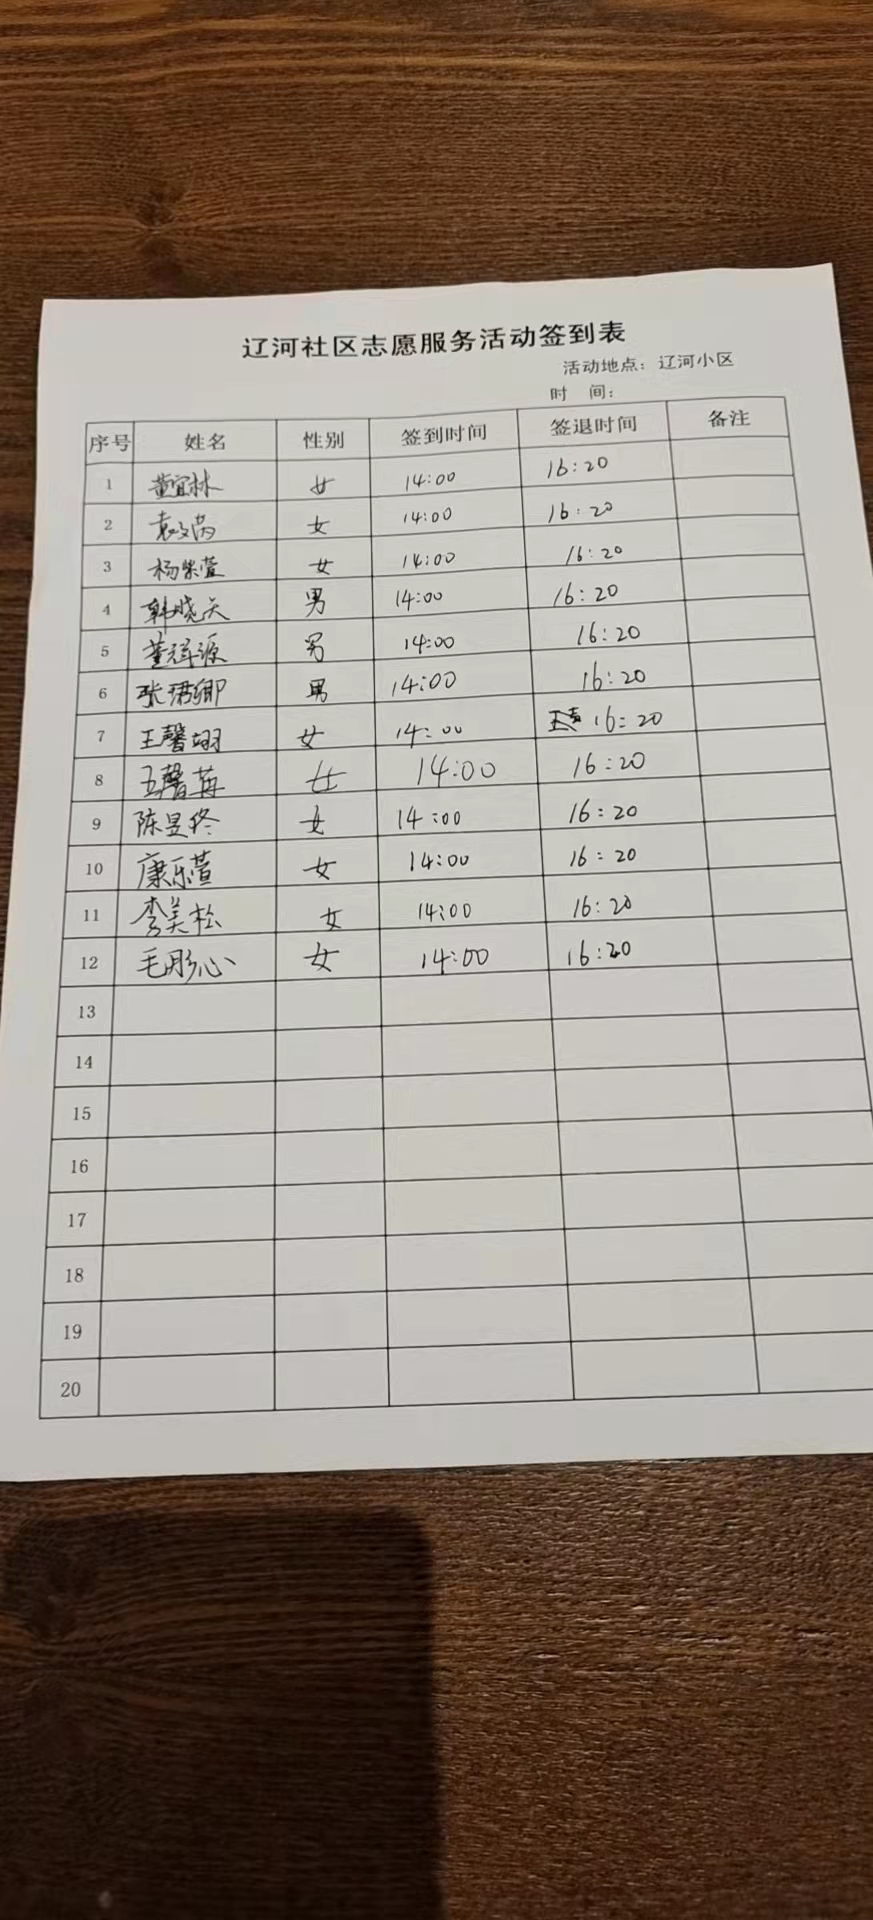 辽河社区志愿服务活动签到表
活动地点：辽河小区
时 间：
序号 姓名 性别 签到时间 签退时间 备注
1 董宜林 女 14:00 16:20
2 女 14:00 16:20
3 杨紫萱 女 14:00 16:20
4 韩晓天 男 14:00 16:20
5 董祥源 男 14:00 16:20
6 张珺卿 男 14:00 16:20
7 王馨翊 女 14:00 16:20
8 王馨苒 女 14:00 16:20
9 陈昱佟 女 14:00 16:20
10 康乐萱 女 14:00 16:20
11 李美松 女 14:00 16:20
12 毛彤心 女 14:00 16:20
13
14
15
16
17
18
19
20